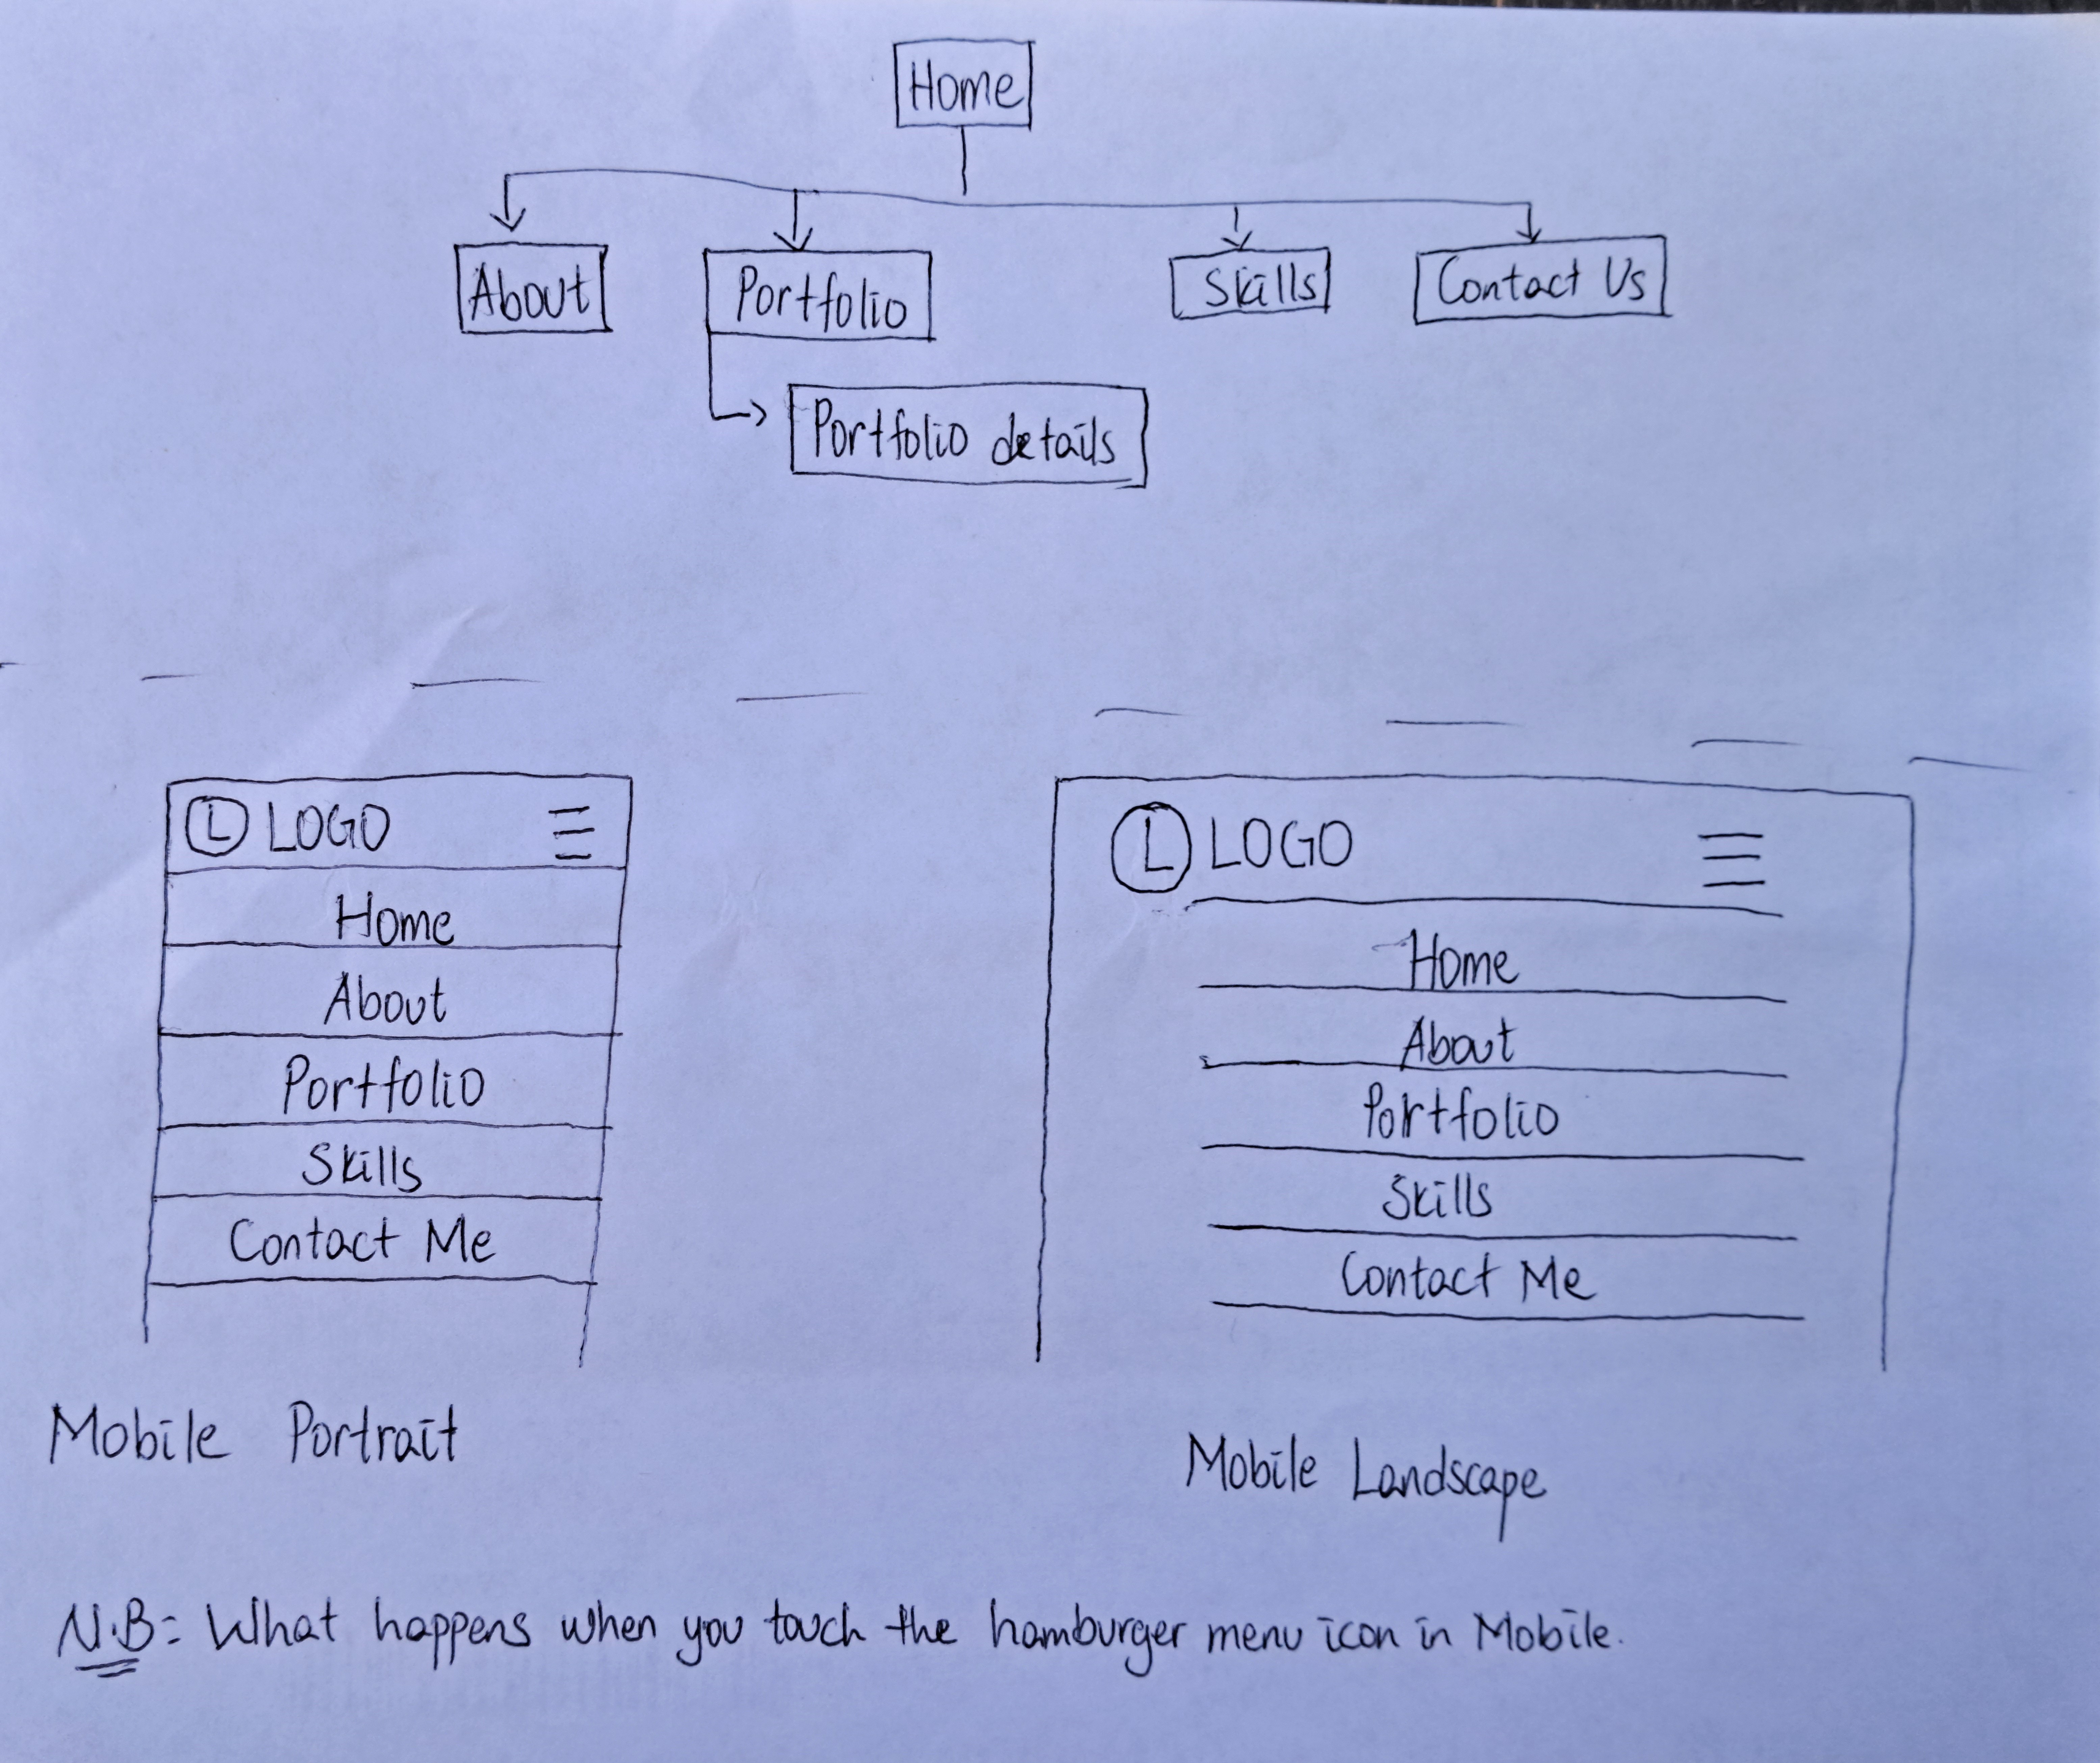 Home
About
Portfolio
Skills
Contact Us
Portfolio details
L LOGO
Home
About
Portfolio
Skills
Contact Me
Mobile Portrait
L LOGO
Home
About
Portfolio
Skills
Contact Me
Mobile Landscape
N.B= What happens when you touch the hamburger menu icon in Mobile.